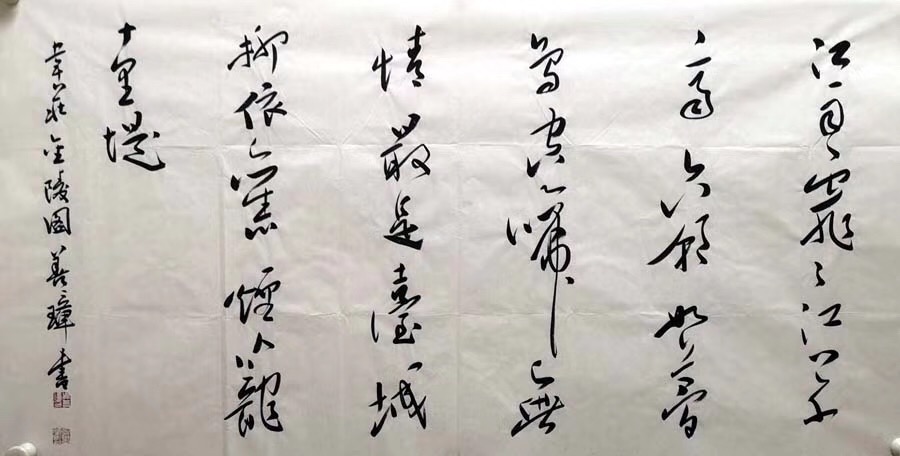 江雨霏々江草
齊六朝如夢
鳥空啼無
情最是臺城
柳依舊煙籠
十里堤
韋莊金陵图善璋書